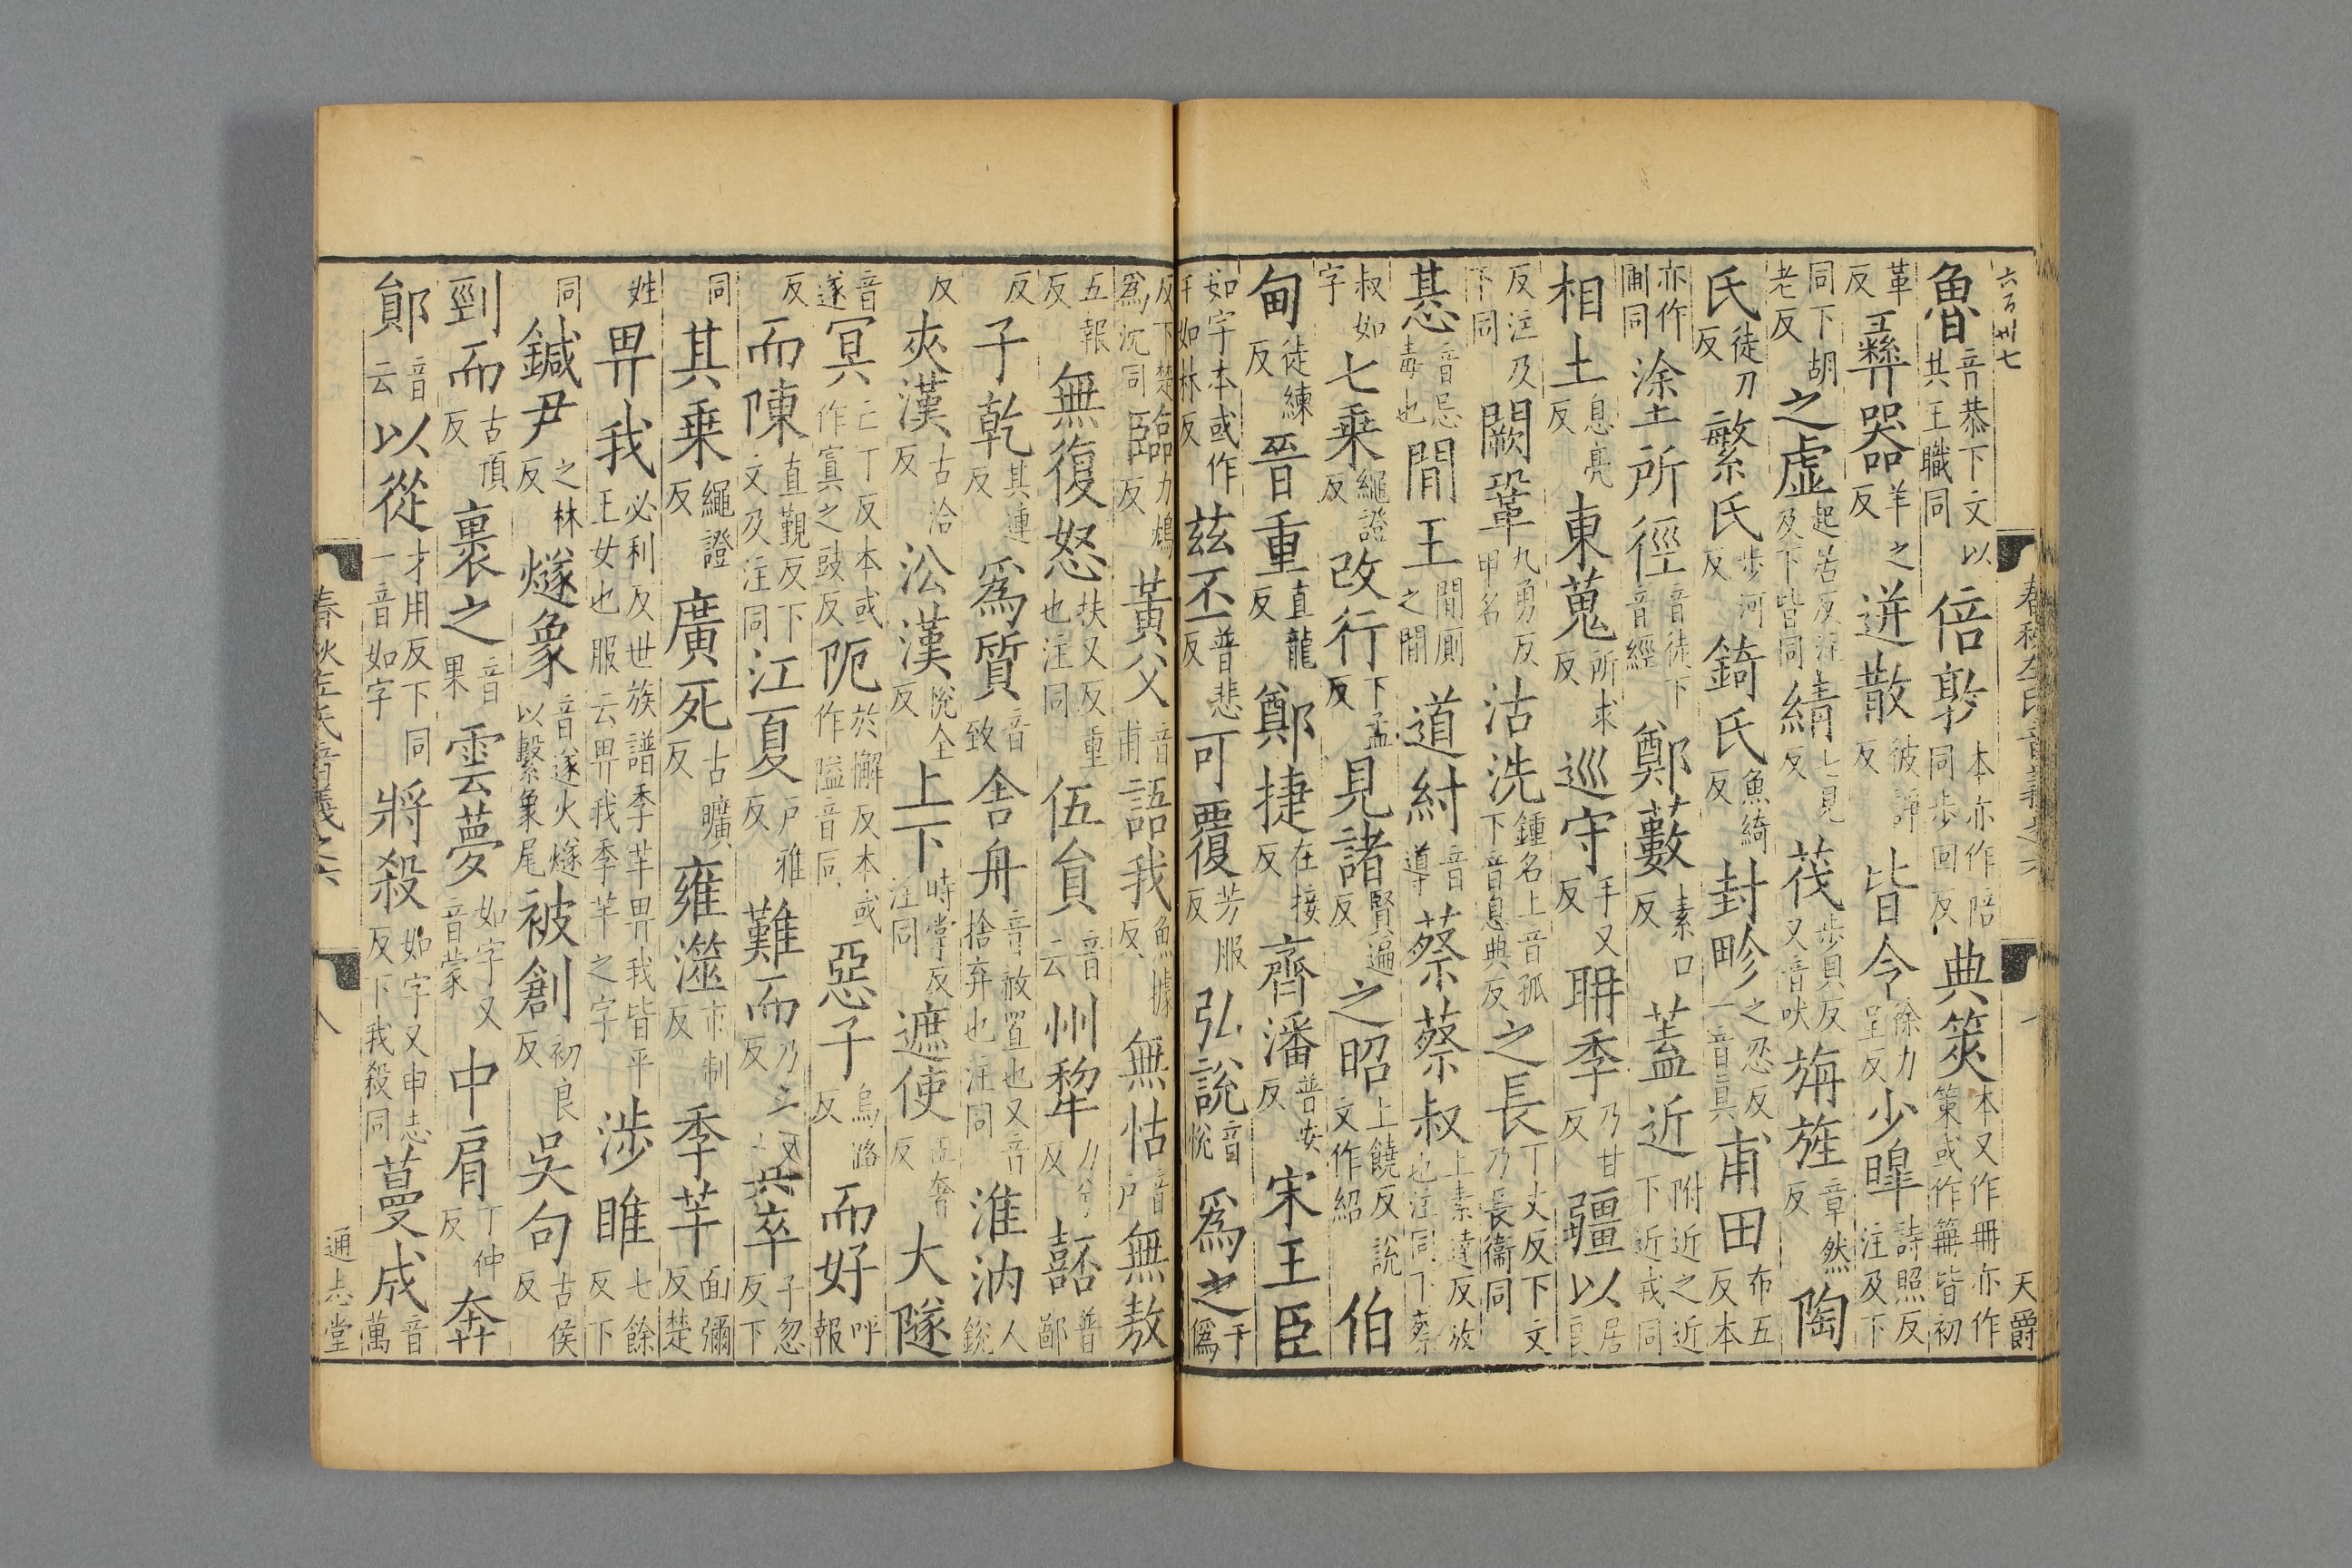 六百卅七
春秋左氏音義之六
天爵
魯音恭下文以其王職同倍敦本亦作陪同步回反典筴本又作冊亦作策或作籍皆初
革反彝器羊之反迸散彼諍反皆令徐力呈反少皞詩照反注及下
同下胡老反之虛起居反注及下皆同綪七見反茷步貝反又音吠旃旌章然反陶
氏徒刀反繁氏步河反錡氏魚綺反封畛之忍反一音真甫田布五反本
亦作圃同涂所徑音徒下音經鄭藪素口反蓋近附近之近下近戎同
相土息亮反東蒐所求反巡守手又反聃季乃甘反疆以居良
反注及下同闕鞏九勇反甲名沽洗鍾名上音孤下音息典反之長丁丈反下文乃長衞同
惎音忌毒也間王間廁之間道紂音導蔡蔡叔上素達反放也注同下蔡
叔如字七乘繩證反改行下孟反見諸賢遍反之昭上饒反說文作紹伯
甸徒練反晉重直龍反鄭捷在接反齊潘普安反宋王臣
如字本或作壬如林反茲丕普悲反可覆芳服反弘說音悅為之于偽
反下楚為沈同臨力鴆反黃父音甫語我魚據反無怙音戶無敖
五報反無復怒扶又反重也注同伍員音云州犂力兮反嚭普鄙
反子乾其連反為質音致舍舟音赦置也又音捨弃也注同淮汭人銳
反夾漢古洽反沿漢悅全反上下時掌反注同遮使正奢反大隧
音遂冥亡丁反本或作寘之豉反阨於懈反本或作隘音同惡子烏路反而好呼報
反而陳直覲反下文及注同江夏戶雅反難而乃旦反卒子忽反下
同其乘繩證反廣死古曠反雍澨市制反季芈面彌反楚
姓畀我必利反世族譜季芈畀我皆平王女也服云畀我季芈之字涉睢七餘反下
同鍼尹之林反燧象音遂火燧以繫象尾被創初良反吳句古侯反
剄而古頂反裹之音果雲夢如字又音蒙中肩丁仲反奔
鄖音云以從才用反下同一音如字將殺如字又申志反下我殺同蔓成音萬
春秋左氏音義之六
八
通志堂